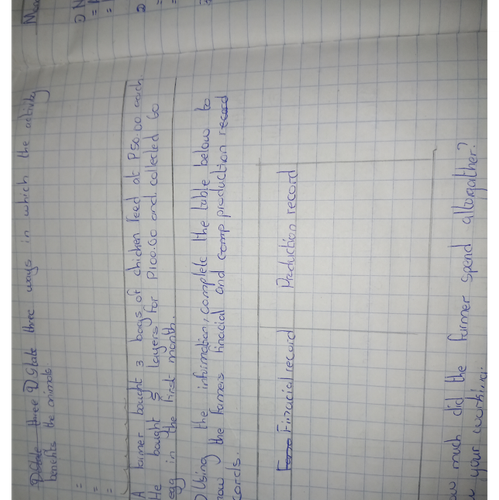 State three ways in which the activity
benefits the animals
=
=
=
A farmer bought 3 bags of chicken feed at P50.00 each
He bought 5 layers for P100.00 and collected 60
egg in the first month.
) Using the information, complete the table below to
how the farmers finacial and comp production record
cords.
Finacial record Production record
w much did the farmer spend altogather?
your working.